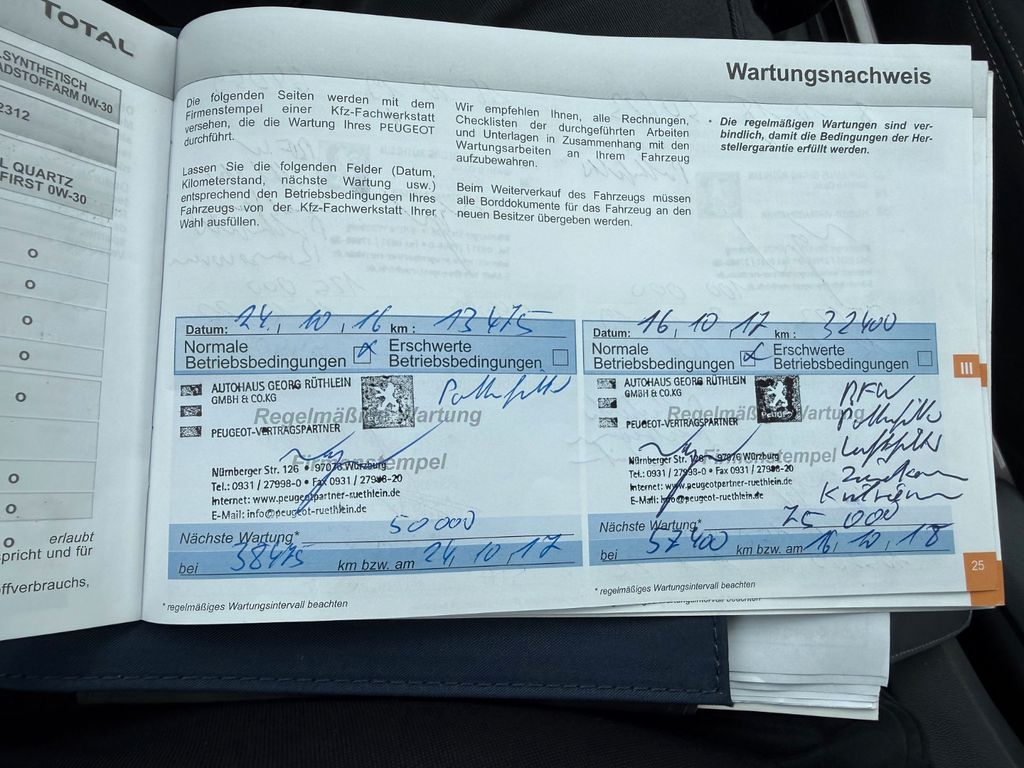 TOTAL
LSYNTHETISCH
ADSTOFFARM 0W-30
2312
L QUARTZ
FIRST 0W-30
o
o
o
o
o
o
o
o erlaubt
spricht und für
offverbrauchs,
Wartungsnachweis
Die folgenden Seiten werden mit dem
Firmenstempel einer Kfz-Fachwerkstatt
versehen, die die Wartung Ihres PEUGEOT
durchführt.
Lassen Sie die folgenden Felder (Datum,
Kilometerstand, nächste Wartung usw.)
entsprechend den Betriebsbedingungen Ihres
Fahrzeugs von der Kfz-Fachwerkstatt Ihrer
Wahl ausfüllen.
Wir empfehlen Ihnen, alle Rechnungen,
Checklisten der durchgeführten Arbeiten
und Unterlagen in Zusammenhang mit den
Wartungsarbeiten an Ihrem Fahrzeug
aufzubewahren.
Beim Weiterverkauf des Fahrzeugs müssen
alle Borddokumente für das Fahrzeug an den
neuen Besitzer übergeben werden.
• Die regelmäßigen Wartungen sind ver-
bindlich, damit die Bedingungen der Her-
stellergarantie erfüllt werden.
Datum: 24, 10, 16 km: 13475
Normale
Betriebsbedingungen
Erschwerte
Betriebsbedingungen
AUTOHAUS GEORG RÜTHLEIN
GMBH & CO.KG
Pollenfilter
Regelmäßige Wartung
PEUGEOT-VERTRAGSPARTNER
Firmenstempel
Nürnberger Str. 126 • 97076 Würzburg
Tel.: 0931 / 27998-0 • Fax 0931 / 27998-20
Internet: www.peugeotpartner-ruethlein.de
E-Mail: info@peugeot-ruethlein.de
Nächste Wartung* 50 000
bei 38475 km bzw. am 24, 10, 17
* regelmäßiges Wartungsintervall beachten
Datum: 16, 10, 17 km: 32400
Normale
Betriebsbedingungen
Erschwerte
Betriebsbedingungen
AUTOHAUS GEORG RÜTHLEIN
GMBH & CO.KG
Peugeot
BFW
Pollenfilter
Luftfilter
Regelmäßige Wartung
PEUGEOT-VERTRAGSPARTNER
Firmenstempel
Nürnberger Str. 126 • 97076 Würzburg
Tel.: 0931 / 27998-0 • Fax 0931 / 27998-20
Internet: www.peugeotpartner-ruethlein.de
E-Mail: info@peugeot-ruethlein.de
Nächste Wartung* 75 000
bei 57400 km bzw. am 16, 10, 18
* regelmäßiges Wartungsintervall beachten
III
25